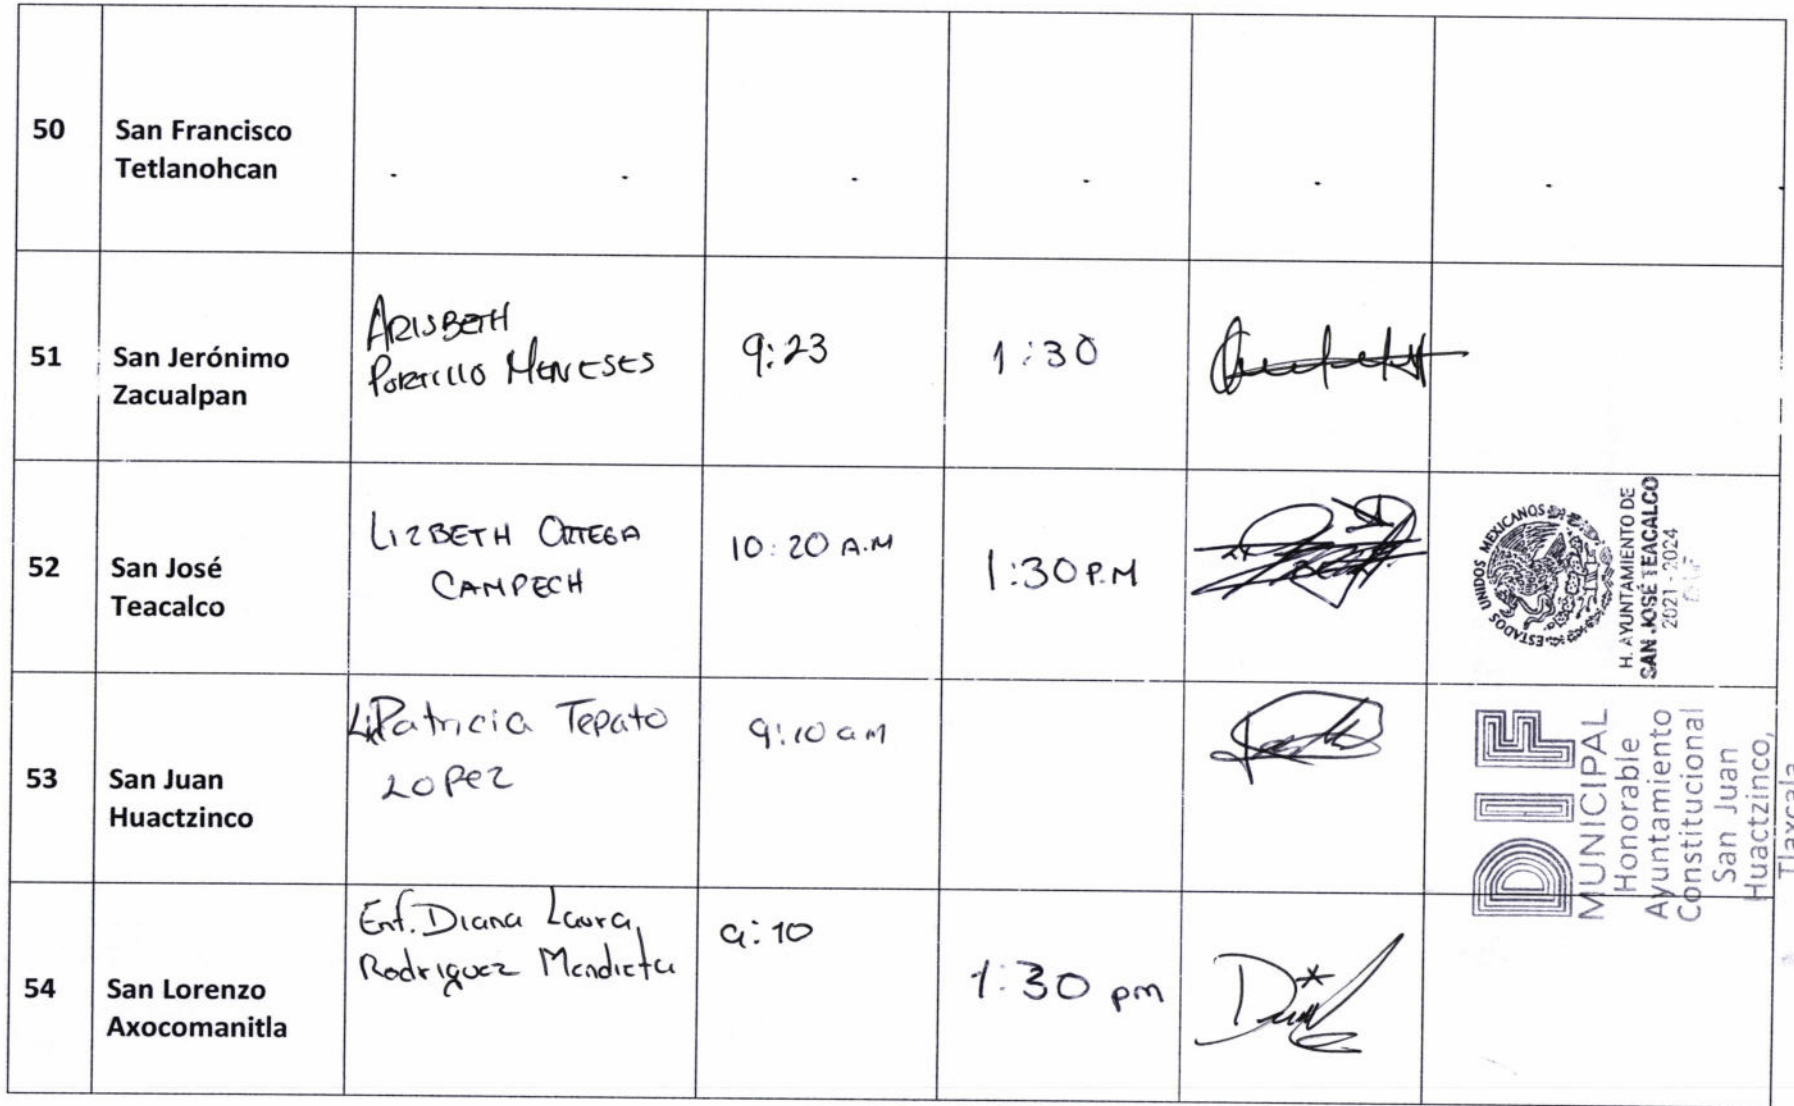 50
San Francisco
Tetlanohcan
51
San Jerónimo
Zacualpan
ARISBETH
PORTILLO MENESES
9:23
1:30
52
San José
Teacalco
LIZBETH ORTEGA
CAMPECH
10:20 A.M
1:30 P.M
ESTADOS UNIDOS MEXICANOS
H. AYUNTAMIENTO DE
SAN JOSÉ TEACALCO
2021 - 2024
DIF
53
San Juan
Huactzinco
Patricia Tepato
LOPEZ
9:10 am
DIF
MUNICIPAL
Honorable
Ayuntamiento
Constitucional
San Juan
Huactzinco,
Tlaxcala
54
San Lorenzo
Axocomanitla
Enf. Diana Laura
Rodriguez Mendieta
9:10
1:30 pm